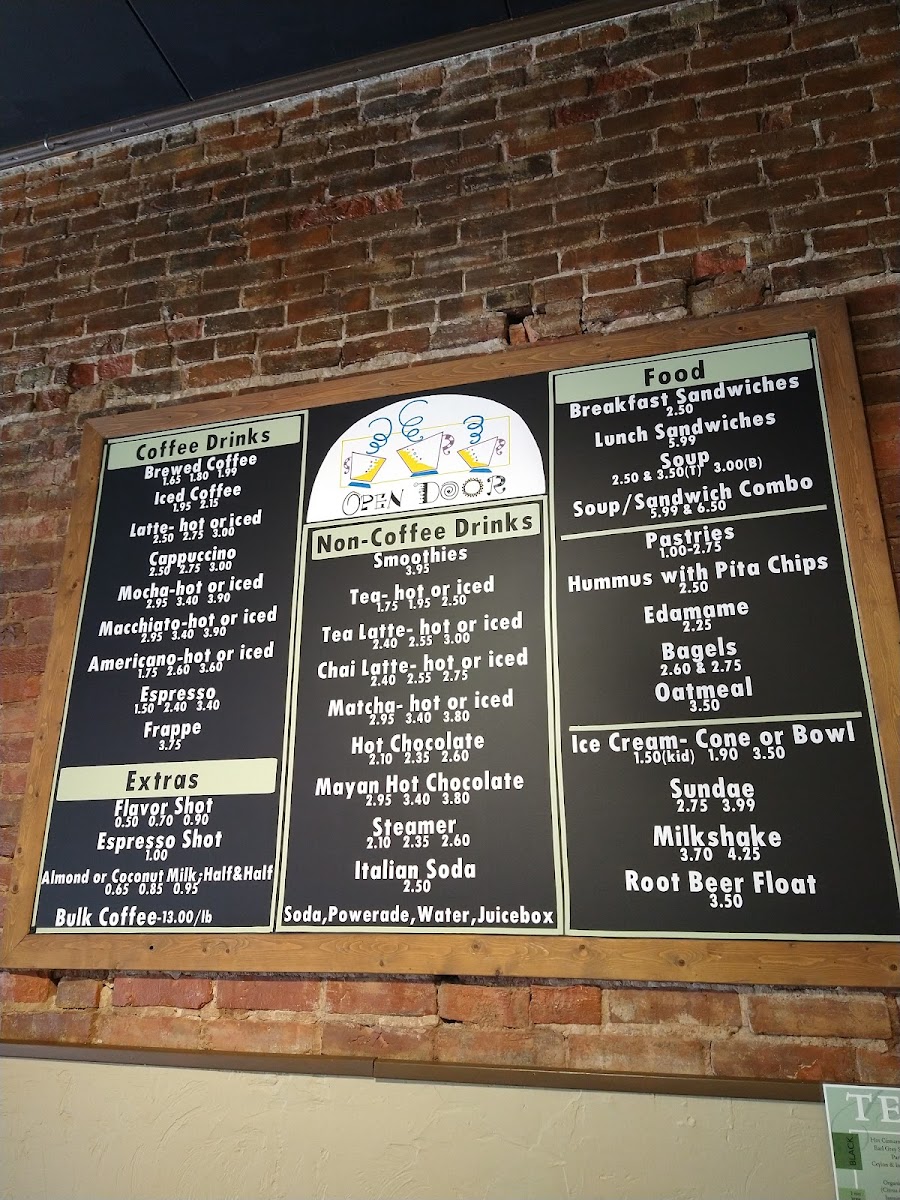 Coffee Drinks
Brewed Coffee
1.65 1.80 1.99
Iced Coffee
1.95 2.15
Latte- hot or iced
2.50 2.75 3.00
Cappuccino
2.50 2.75 3.00
Mocha-hot or iced
2.95 3.40 3.90
Macchiato-hot or iced
2.95 3.40 3.90
Americano-hot or iced
1.75 2.60 3.60
Espresso
1.50 2.40 3.40
Frappe
3.75
Extras
Flavor Shot
0.50 0.70 0.90
Espresso Shot
1.00
Almond or Coconut Milk,-Half&Half
0.65 0.85 0.95
Bulk Coffee-13.00/lb
OPEN DOOR
Non-Coffee Drinks
Smoothies
3.95
Tea- hot or iced
1.75 1.95 2.50
Tea Latte- hot or iced
2.40 2.55 3.00
Chai Latte- hot or iced
2.40 2.55 2.75
Matcha- hot or iced
2.95 3.40 3.80
Hot Chocolate
2.10 2.35 2.60
Mayan Hot Chocolate
2.95 3.40 3.80
Steamer
2.10 2.35 2.60
Italian Soda
2.50
Soda,Powerade,Water,Juicebox
Food
Breakfast Sandwiches
2.50
Lunch Sandwiches
5.99
Soup
2.50 & 3.50(T) 3.00(B)
Soup/Sandwich Combo
5.99 & 6.50
Pastries
1.00-2.75
Hummus with Pita Chips
2.50
Edamame
2.25
Bagels
2.60 & 2.75
Oatmeal
3.50
Ice Cream- Cone or Bowl
1.50(kid) 1.90 3.50
Sundae
2.75 3.99
Milkshake
3.70 4.25
Root Beer Float
3.50
BLACK